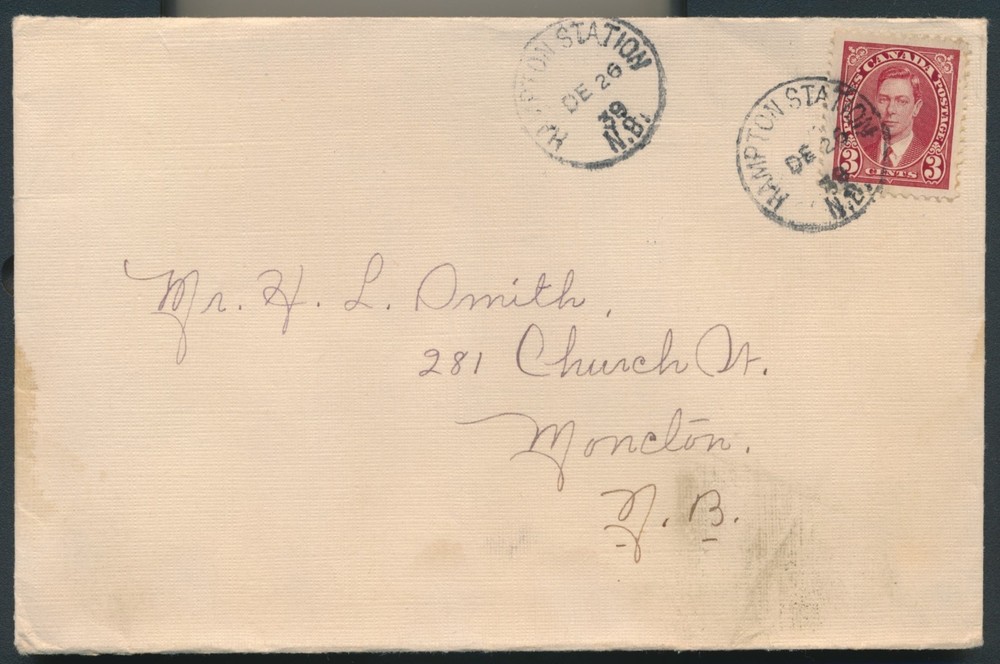 HAMPTON STATION
DE 26
39
N.B.
HAMPTON STATION
DE 2
39
N.B.
POSTES CANADA POSTAGE
3 CENTS 3
Mr. H. L. Smith,
281 Church St.
Moncton.
N. B.